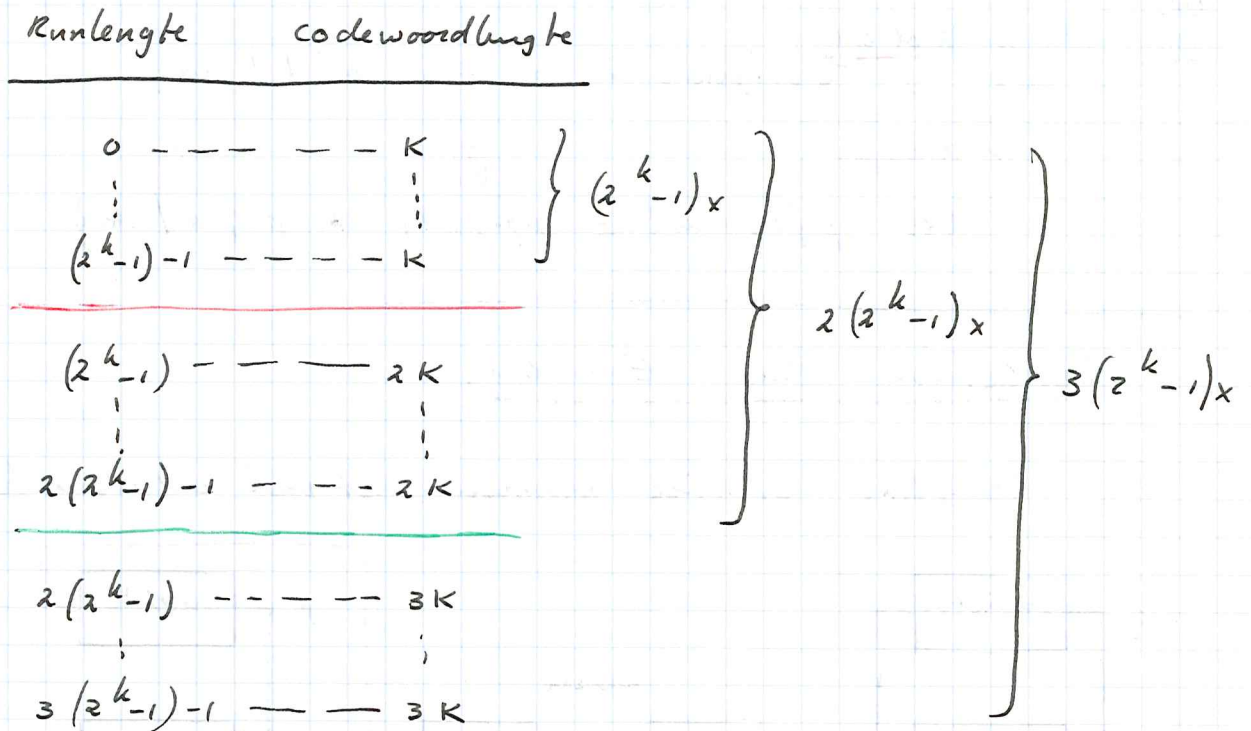 Runlengte codewoordlengte
0 - - - - - - K
(2^k-1)-1 - - - - K } (2^k-1)x
(2^k-1) - - - 2K
2(2^k-1)-1 - - - 2K } 2(2^k-1)x
2(2^k-1) - - - - - 3K
3(2^k-1)-1 - - - 3K } 3(2^k-1)x